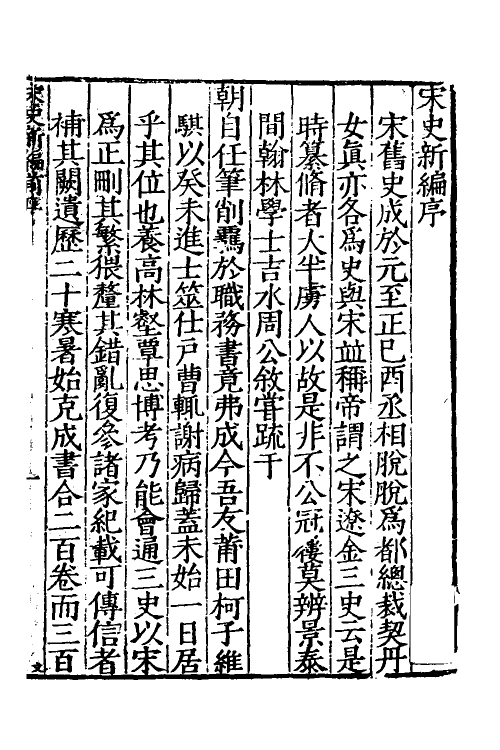 宋史新編序
宋舊史成於元至正已酉丞相脫脫爲都總裁契丹
女眞亦各爲史與宋並稱帝謂之宋遼金三史云是
時纂脩者大半虜人以故是非不公冠履莫辨景泰
間翰林學士吉水周公敘嘗疏于
朝自任筆削羈於職務書竟弗成今吾友莆田柯子維
騏以癸未進士筮仕戸曹輒謝病歸蓋未始一日居
乎其位也養高林壑覃思博考乃能會通三史以宋
爲正刪其繁猥釐其錯亂復參諸家紀載可傳信者
補其闕遺歷二十寒暑始克成書合二百卷而三百
宋史新編前序
一